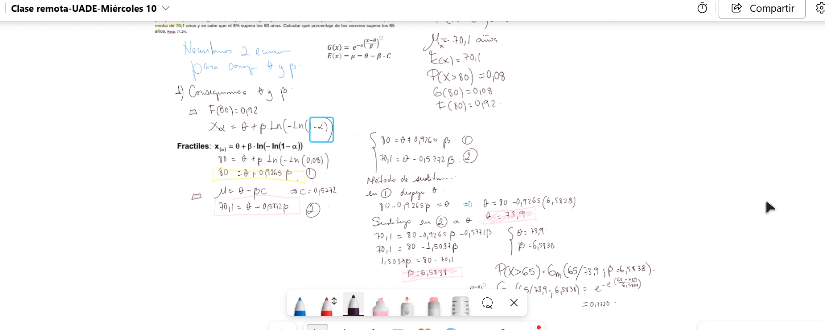 Clase remota-UADE-Miércoles 10
Compartir
media de 70,1 años y se sabe que el 8% supera los 80 años. Calcular qué porcentaje de los varones supera los 65
años.
Necesitamos 2 ecuac
para conseg θ y β.
G(x) = e^-e^((x-θ)/β)
E(x) = μ = θ - β · C
μx = 70,1 años
E(x) = 70,1
P(x>80) = 0,08
G(80) = 0,08
F(80) = 0,92
1) Conseguimos θ y β
⇒ F(80) = 0,92
Xα = θ + β Ln(-Ln(1-α))
Fractiles: x(α) = θ + β · ln(- ln(1 - α))
80 = θ + β Ln(-Ln(0,08))
80 = θ + 0,9265 β ①
μ = θ - βC ⇒ C = 0,5772
70,1 = θ - 0,5772β ②
80 = θ + 0,9265 β ①
70,1 = θ - 0,5772 β ②
Método de
en ① despejo θ
80 - 0,9265β = θ ⇒ θ = 80 - 0,9265(6,5838)
θ = 73,9
en ② a θ
70,1 = 80 - 0,9265 β - 0,5772β
70,1 = 80 - 1,5037β
1,5037β = 80 - 70,1
β = 6,5838
θ = 73,9
β = 6,5838
P(X>65) = Gm(65/73,9; β = 6,5838).